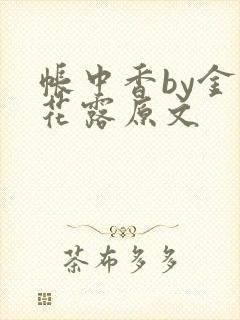 帐中香by金
花露原文
茶布多多